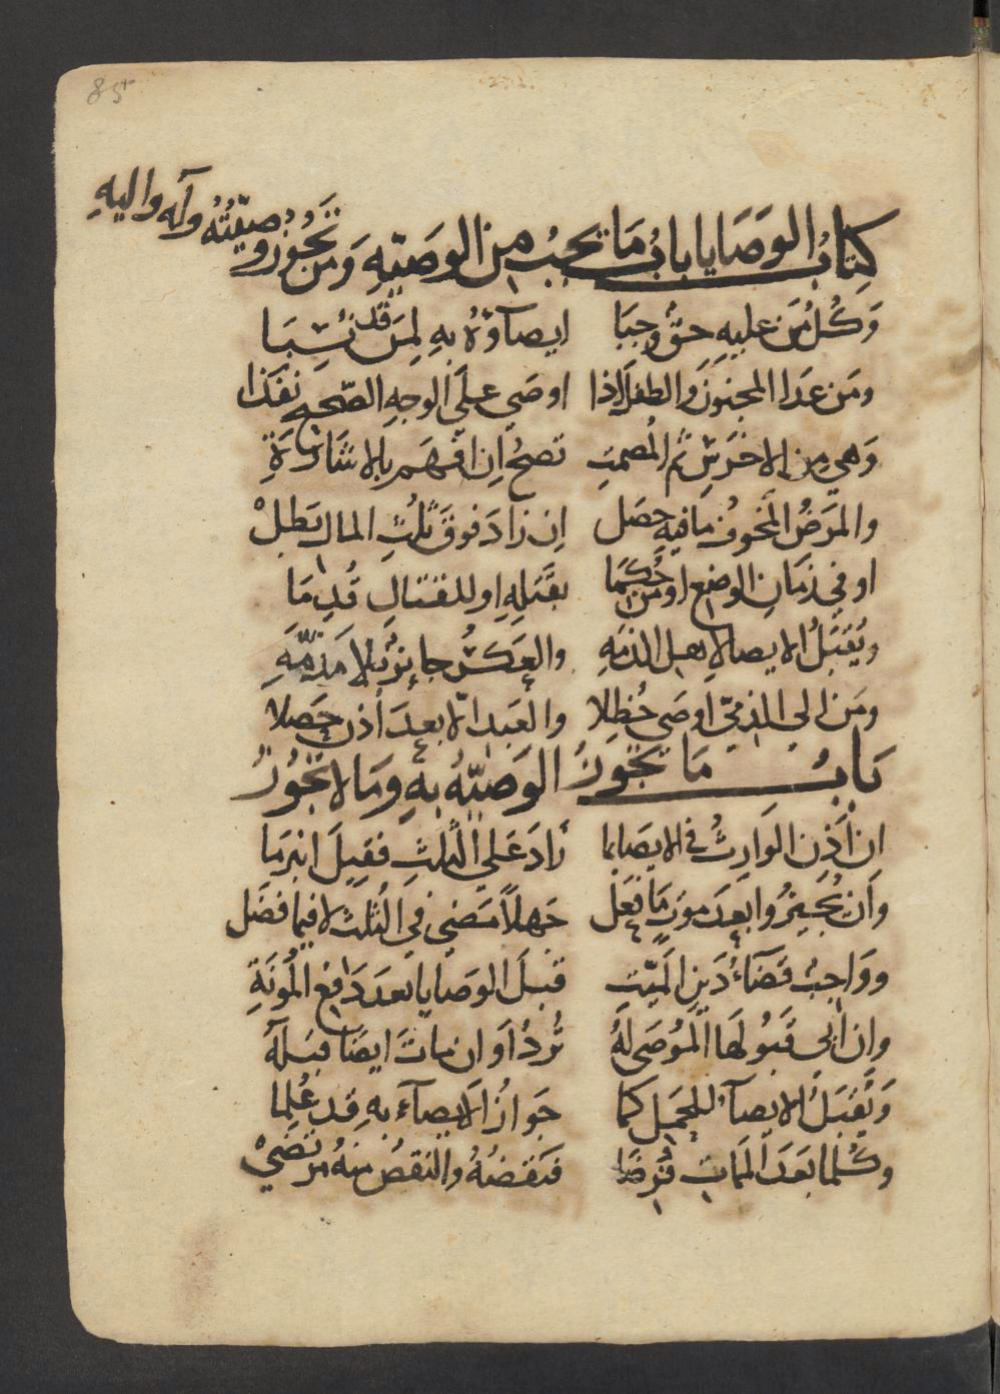 85
كِتابُ الوَصَايا بابُ مَا يجبُ مِن الوصَيّةِ وَمَن تَجُوزُ وصيّتُهُ وله واليهِ
وَكُلُ مَن عليهِ حقٌ وجبَا ايصآؤهُ بهِ لِمَن قَد نُسِبَا
ومَن عَدَا المجنونَ والطفلَ اذا اوصَى على الوجهِ الصّحيح نفَذا
وَهي من الاخرَسِ ثم المُصمتِ تصحُ اِن افهَم بالاشَارَةِ
والمَرَضُ المَخوفُ مافيهِ حصَل اِن زادَ فوقَ ثلُثِ المال بَطلْ
او في زمَانِ الوضعِ او من حُكمَا بقَتلِهِ او للقتالِ قُدِمَا
ويُقبَلُ الايصا لاِهل الذمّهِ والعَكسُ جايزٌ بلا مَذمّهِ
ومَن الى الذميّ اوصَى حُظِلا والعَبد الاّ بعدَ اذن حَصلا
بَابُ مَا تجَوزُ الوَصيّهُ بهِ ومَا لا تَجُوزُ
ان أذِن الوَارِثُ في الايصَا بما زادَ عَلى الثلثِ فقيلَ ابنرمَا
وَان يُجيزُوا بعدَ موتٍ مَا فعَل جَهلاً مَضى في الثلث لا فيما فضَل
وواجبٌ قضَآءُ دَينِ المَيّتِ قبلَ الوصَايا بعدَ دَافع المُونَةِ
وان أبى قَبُولهَا المُوصَى لهُ تُردُ أو ان مات ايضًا قبلهُ
وَيُقبَلُ الايصآء للحَمل كما جَوازُ الايصآء بهِ قد عُلِما
وكُلما بَعدَ المَمات فُوضَا فنقضُهُ والنقصُ منهُ مرتضىْ